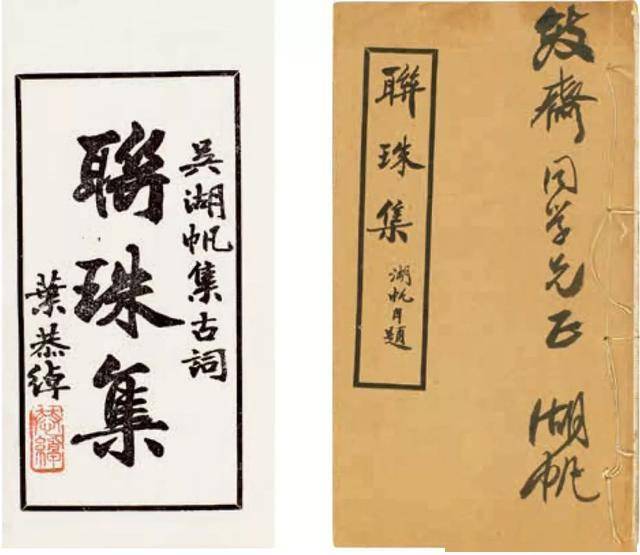 吳湖帆集古詞
聯珠集
葉恭綽
恭綽
齋同学兄正 湖帆
聯珠集
湖帆自題